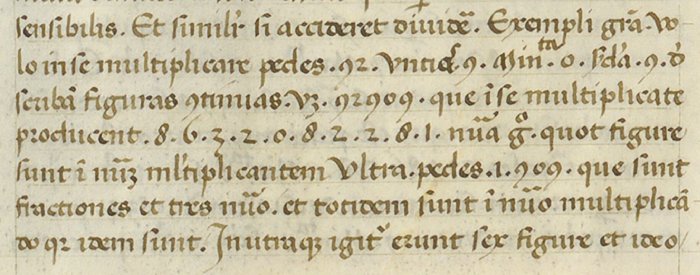 sensibilis. Et similr si accideret diuidē. Exempli grā. uo
lo in se multiplicare pedes .92. untie .9. Min ta .0. sda .9.
scribā figuras 9tinuas. vz. 92909. que ī se multiplicate
producent .8.6.3.2.0.8.2.2.8.1. nūa gͦ. quot figure
sunt ī mltiplicantem Vltra .pedes .1. 909. que sunt
fractiones et tres nūo. et totidem sunt ī nūo multiplicā
do qr idem sunt. In utraqꝫ igitr erunt sex figure et ideo